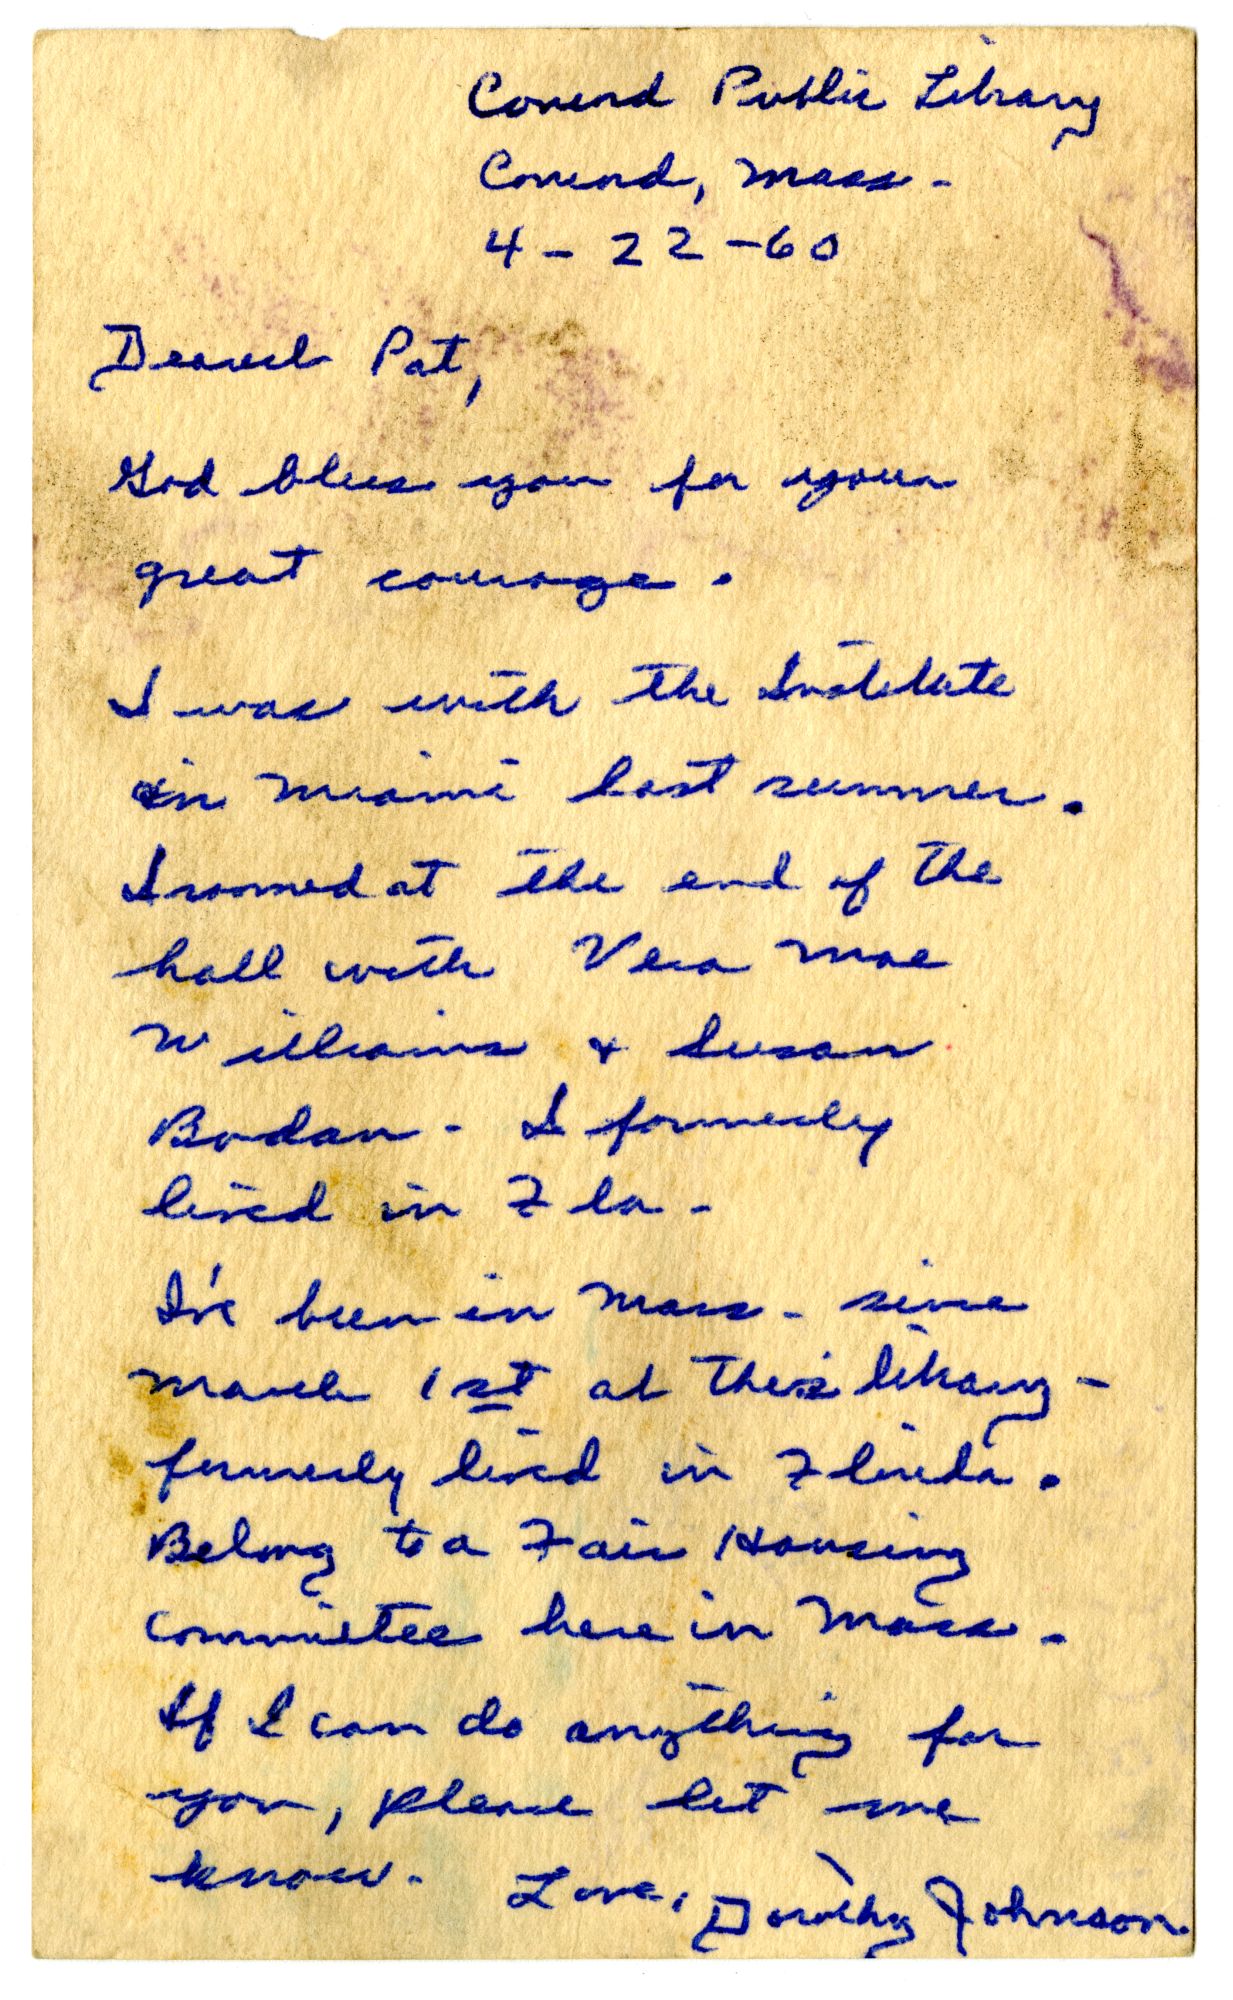 Concord Public Library
Concord, Mass -
4 - 22 - 60
Dearest Pat,
God bless you for your
great courage.
I was with the Institute
in Miami last summer.
I roomed at the end of the
hall with Vera Mae
Williams & Susan
Bodan - I formerly
lived in Fla -
I've been in Mass - since
March 1st at this library -
formerly lived in Florida.
Belong to a Fair Housing
committee here in Mass -
If I can do anything for
you, please let me
know - Love, Dorothy Johnson